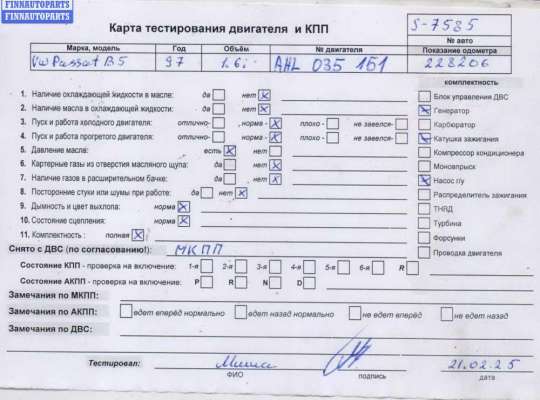 FINNAUTOPARTS
FINNAUTOPARTS
Карта тестирования двигателя и КПП
S-7535
№ авто
Марка, модель Год Объём № двигателя Показание одометра
VW Passat B5 97 1.6i AHL 035 161 228206
комплектность
1. Наличие охлаждающей жидкости в масле: да нет
Блок управления ДВС
2. Наличие масла в охлаждающей жидкости: да нет
Генератор
3. Пуск и работа холодного двигателя: отлично- норма - плохо - не завелся-
Карбюратор
4. Пуск и работа прогретого двигателя: отлично- норма - плохо - не завелся-
Катушка зажигания
5. Давление масле: есть нет
Компрессор кондиционера
6. Картерные газы из отверстия масляного щупа: да нет
Моновпрыск
7. Наличие газов в расширительном бачке: да нет
Насос гу
8. Посторонние стуки или шумы при работе: да нет
Распределитель зажигания
9. Дымность и цвет выхлопа: норма
ТНВД
10. Состояние сцепления: норма
Турбина
11. Комплектность : полная
Форсунки
Снято с ДВС (по согласованию!): МКПП
Проводка двигателя
Состояние КПП - проверка на включение: 1-я 2-я 3-я 4-я 5-я 6-я R
Состояние АКПП - проверка на включение: P R N D
Замечания по МКПП:
Замечания по АКПП: едет вперёд нормально едет назад нормально не едет вперёд не едет назад
Замечания по ДВС:
Тестировал: Миша 21.02.25
ФИО подпись дата